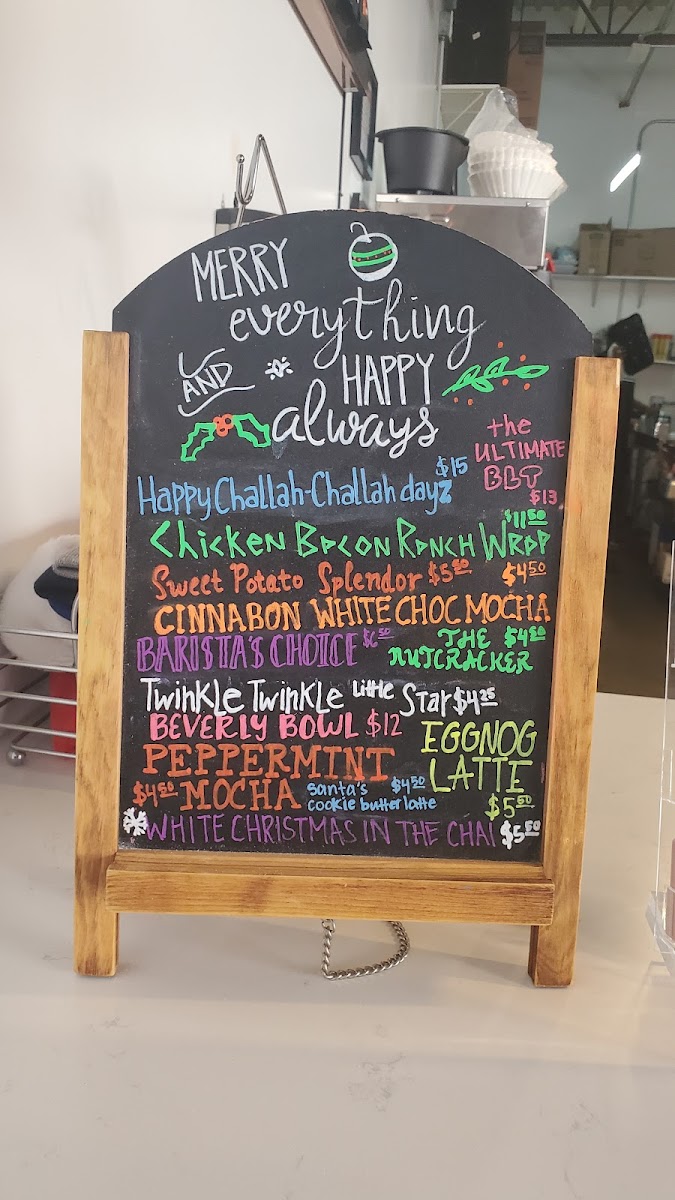 MERRY
everything
AND HAPPY
always
the
ULTIMATE
BLT
$13
Happy Challah-Challah dayz $15
Chicken Bacon Ranch Wrap $11.50
Sweet Potato Splendor $5.50
CINNABON WHITE CHOC MOCHA $4.50
BARISTA'S CHOICE
THE $4.50
NUTCRACKER
Twinkle Twinkle Little Star $4.25
BEVERLY BOWL $12
EGGNOG
LATTE
$5.50
PEPPERMINT
$4.50 MOCHA
santa's $4.50
cookie butter latte
WHITE CHRISTMAS IN THE CHAI $5.50